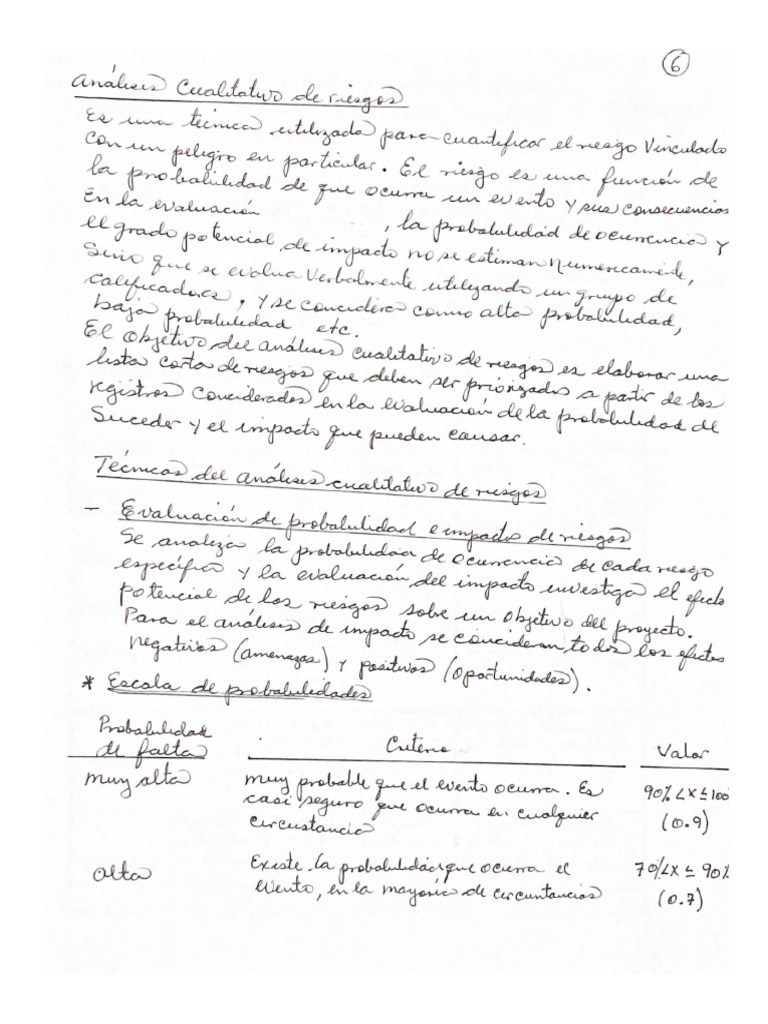 6
Análisis Cualitativo de riesgos
Es una técnica utilizada para cuantificar el riesgo Vinculado
con un peligro en particular. El riesgo es una función de
la probabilidad de que ocurra un evento y sus consecuencias
En la evaluación , la probabilidad de ocurrencia y
el grado potencial de impacto no se estiman numericamente,
Sino que se evalua Verbalmente utilizando un grupo de
calificadores, y se concidera como alta probabilidad,
baja probabilidad etc.
El objetivo del análisis cualitativo de riesgos es elaborar una
lista corta de riesgos que deben ser priorizados a partir de los
registros conciderados en la evaluación de la probabilidad de
Suceder y el impacto que pueden causar.
Técnicas del análisis cualitativo de riesgos
- Evaluación de probabilidad e impacto de riesgos
Se analiza la probabilidad de ocurrencia de cada riesgo
específico y la evaluación del impacto investiga el efecto
potencial de los riesgos sobre un objetivo del proyecto.
Para el análisis de impacto se concideran todos los efectos
negativos (amenazas) y positivos (oportunidades).
* Escala de probabilidades
Probabilidad
de falta Criterio Valor
muy alta muy probable que el evento ocurra. Es 90%<x≤100
casi seguro que ocurra en cualquier
circustancia (0.9)
alta Existe la probabilidad que ocurra el 70%<x≤90%
evento, en la mayoría de circuntancias (0.7)